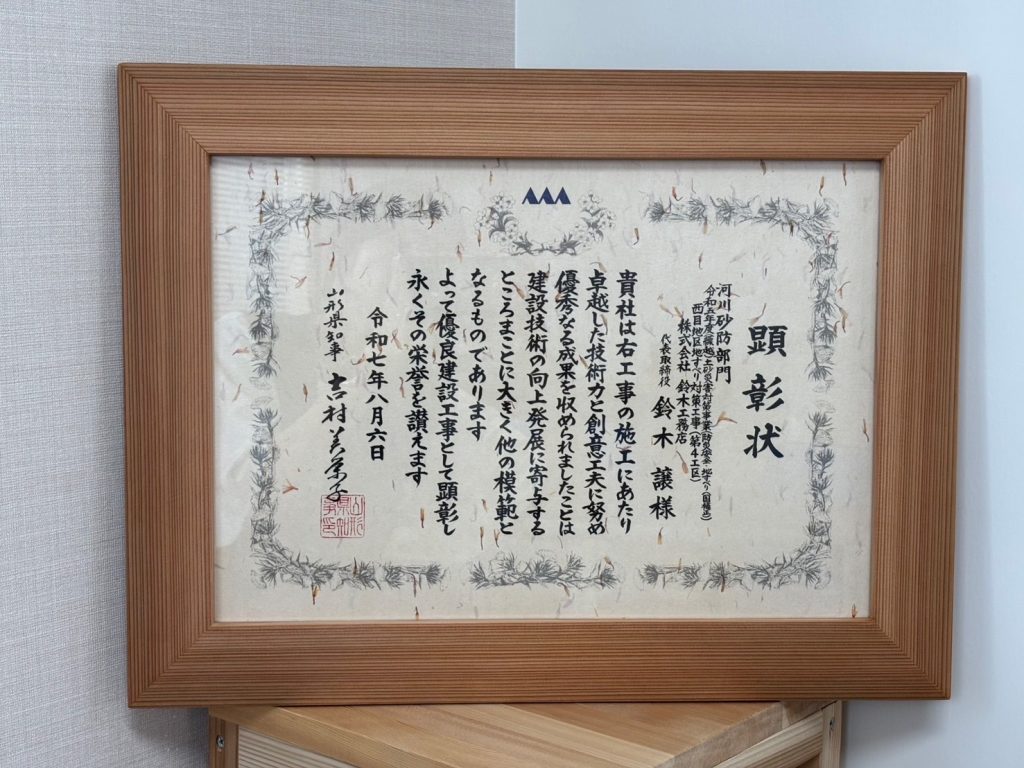 顕彰状
河川砂防部門
令和五年度(繰越)土砂災害対策事業(防災安全・地すべり)(国補正)
西目地区地すべり対策工事(第4工区)
株式会社 鈴木工務店
代表取締役 鈴木 譲 様
貴社は右工事の施工にあたり
卓越した技術力と創意工夫に努め
優秀なる成果を収められましたことは
建設技術の向上発展に寄与する
ところまことに大きく他の模範と
なるものであります
よって優良建設工事として顕彰し
永くその栄誉を讃えます
令和七年八月六日
山形県知事 吉村美栄子